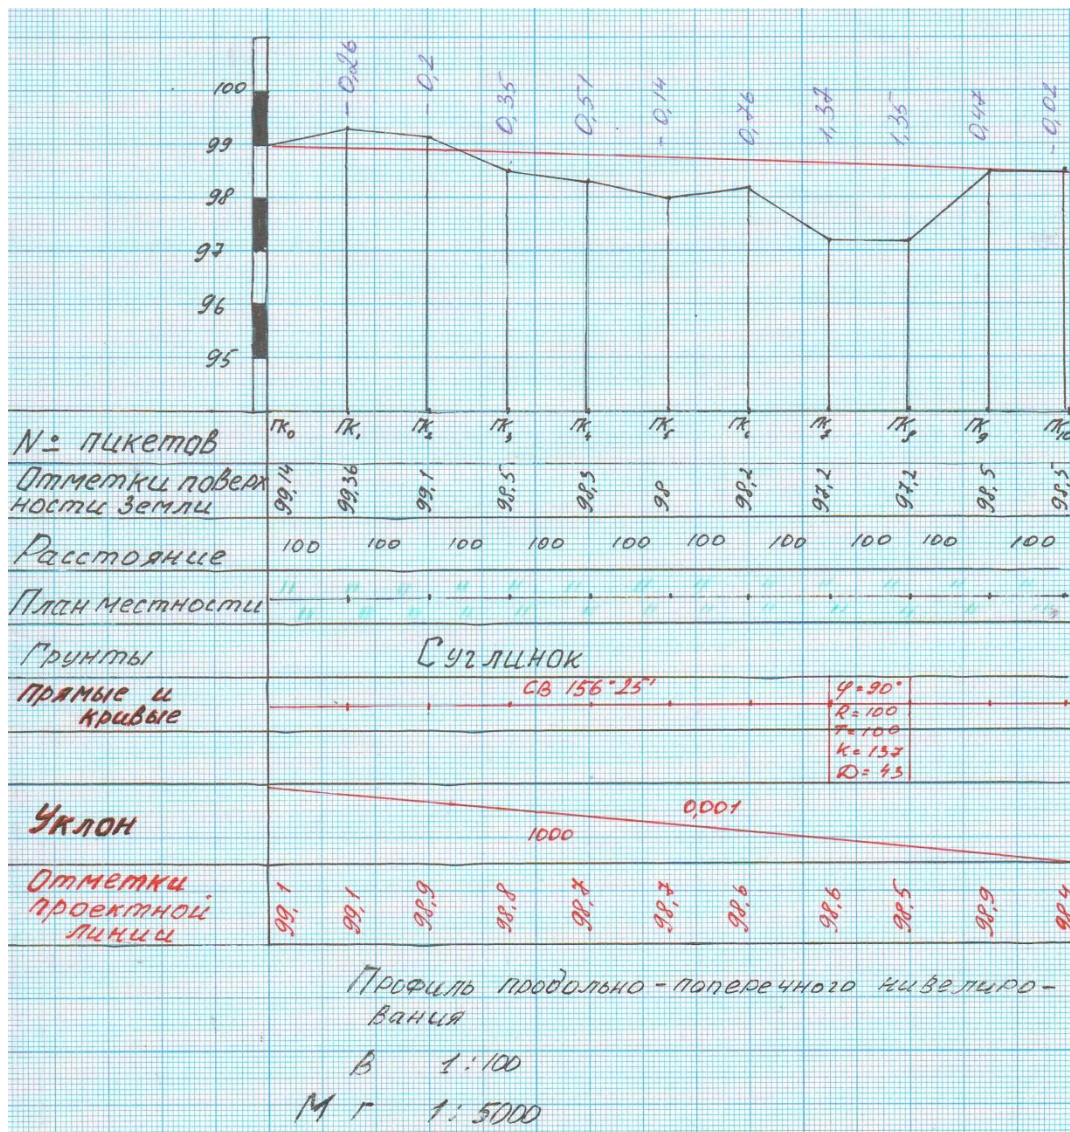 - 0,26 - 0,2 0,35 0,51 - 0,14 0,76 1,37 1,35 0,47 - 0,02
100
99
98
97
96
95
№ пикетов ПК₀ ПК₁ ПК₂ ПК₃ ПК₄ ПК₅ ПК₆ ПК₇ ПК₈ ПК₉ ПК₁₀
Отметки поверх
ности Земли 99,14 99,36 99,1 98,5 98,3 98 98,2 97,2 97,2 98,5 98,5
Расстояние 100 100 100 100 100 100 100 100 100 100
План местности
Грунты Суглинок
прямые и
кривые
СВ 156°25'
φ=90°
R=100
T=100
К=137
Д=43
Уклон 0,001
1000
Отметки
проектной
линии
99,1 99,1 98,9 98,8 98,7 98,7 98,6 98,6 98,5 98,9 98,4
Профиль продольно-поперечного нивелиро-
вания
В 1:100
М Г 1:5000